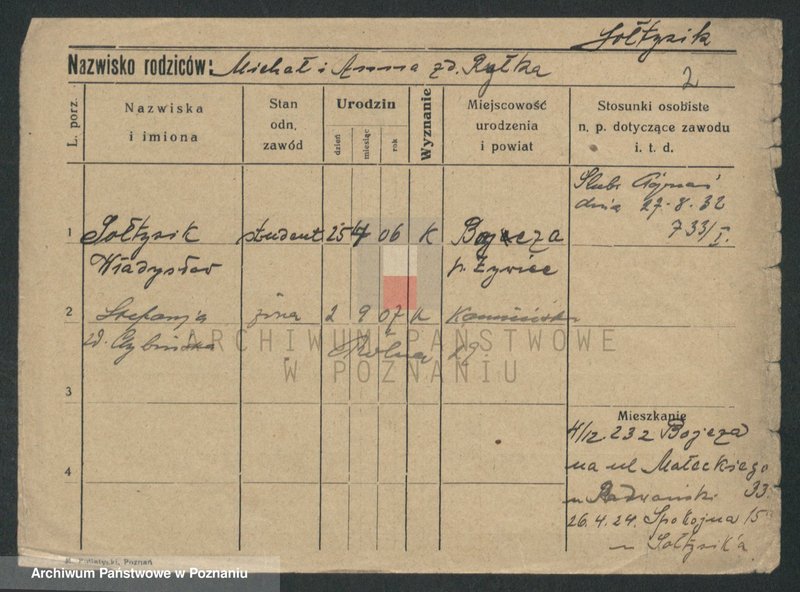 Sołtysik
Nazwisko rodziców: Michał i Anna zd. Ryłka
2
L. porz.
Nazwiska
i imiona
Stan
odn.
zawód
Urodzin
dzień
miesiąc
rok
Wyznanie
Miejscowość
urodzenia
i powiat
Stosunki osobiste
n. p. dotyczące zawodu
i. t. d.
Ślub
dnia 27-8-32
733/I.
1
Sołtysik
Władysław
student
25
06
K
p. Żywiec
2
Stefanja
żona
2 9 07
zd.
29
ARCHIWUM PAŃSTWOWE
W POZNANIU
3
4
Mieszkanie
4/12.232
na ul Małeckiego
33
26.4.24. Spokojna 15
u Sołtysik'a
Poznań
Archiwum Państwowe w Poznaniu